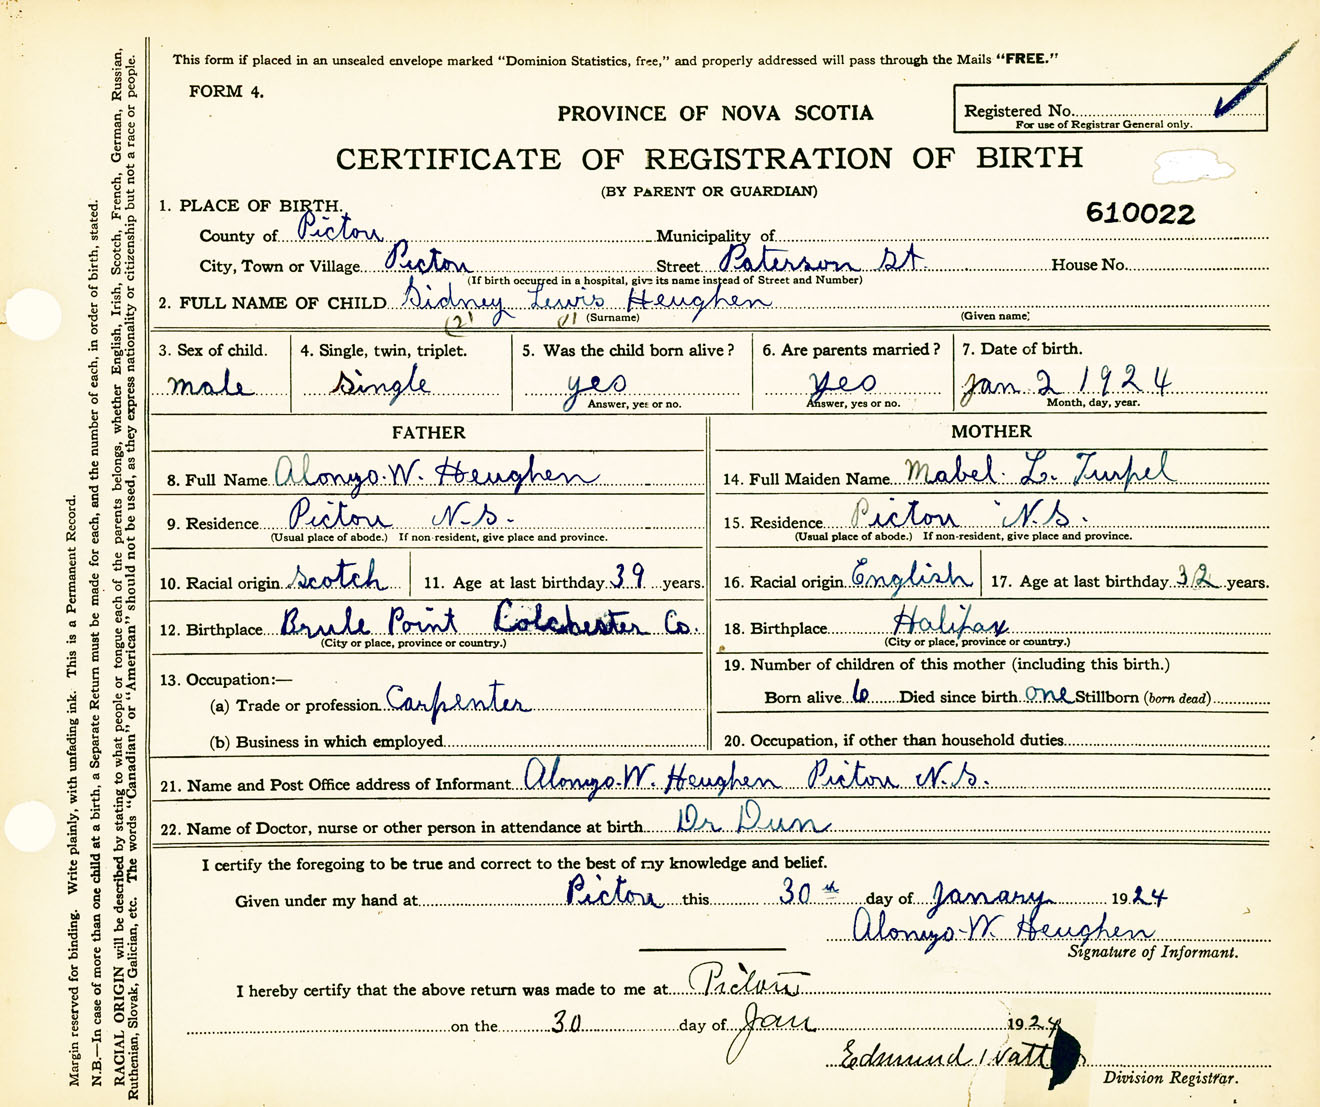 This form if placed in an unsealed envelope marked "Dominion Statistics, free," and properly addressed will pass through the Mails "FREE."
FORM 4.
PROVINCE OF NOVA SCOTIA
Registered No.
For use of Registrar General only.
CERTIFICATE OF REGISTRATION OF BIRTH
(BY PARENT OR GUARDIAN)
610022
1. PLACE OF BIRTH.
County of Pictou Municipality of
City, Town or Village Pictou Street Paterson St. House No.
(If birth occurred in a hospital, give its name instead of Street and Number)
2. FULL NAME OF CHILD Sidney Lewis Heughen
(2) (1) (Surname) (Given name)
3. Sex of child. 4. Single, twin, triplet. 5. Was the child born alive? 6. Are parents married? 7. Date of birth.
male single yes yes Jan 2 1924
Answer, yes or no. Answer, yes or no. Month, day, year.
FATHER MOTHER
8. Full Name Alonzo. W. Heughen 14. Full Maiden Name Mabel. L. Turpel
9. Residence Pictou N.S. 15. Residence Pictou N.S.
(Usual place of abode.) If non-resident, give place and province. (Usual place of abode.) If non-resident, give place and province.
10. Racial origin Scotch 11. Age at last birthday 39 years. 16. Racial origin English 17. Age at last birthday 32 years.
12. Birthplace Brule Point Colchester Co. 18. Birthplace Halifax
(City or place, province or country.) (City or place, province or country.)
13. Occupation:— 19. Number of children of this mother (including this birth.)
(a) Trade or profession Carpenter Born alive 6 Died since birth one Stillborn (born dead)
(b) Business in which employed 20. Occupation, if other than household duties
21. Name and Post Office address of Informant Alonzo. W. Heughen Pictou N.S.
22. Name of Doctor, nurse or other person in attendance at birth Dr Dun
I certify the foregoing to be true and correct to the best of my knowledge and belief.
Given under my hand at Pictou this 30th day of Janary 1924
Alonzo. W. Heughen
Signature of Informant.
I hereby certify that the above return was made to me at Pictou
on the 30 day of Jan 1924
Edmund
Division Registrar.
Margin reserved for binding. Write plainly, with unfading ink. This is a Permanent Record.
N.B.—In case of more than one child at a birth, a Separate Return must be made for each, and the number of each, in order of birth, stated.
RACIAL ORIGIN will be described by stating to what people or tongue each of the parents belongs, whether English, Irish, Scotch, French, German, Russian,
Ruthenian, Slovak, Galician, etc. The words "Canadian" or "American" should not be used, as they express nationality or citizenship but not a race or people.